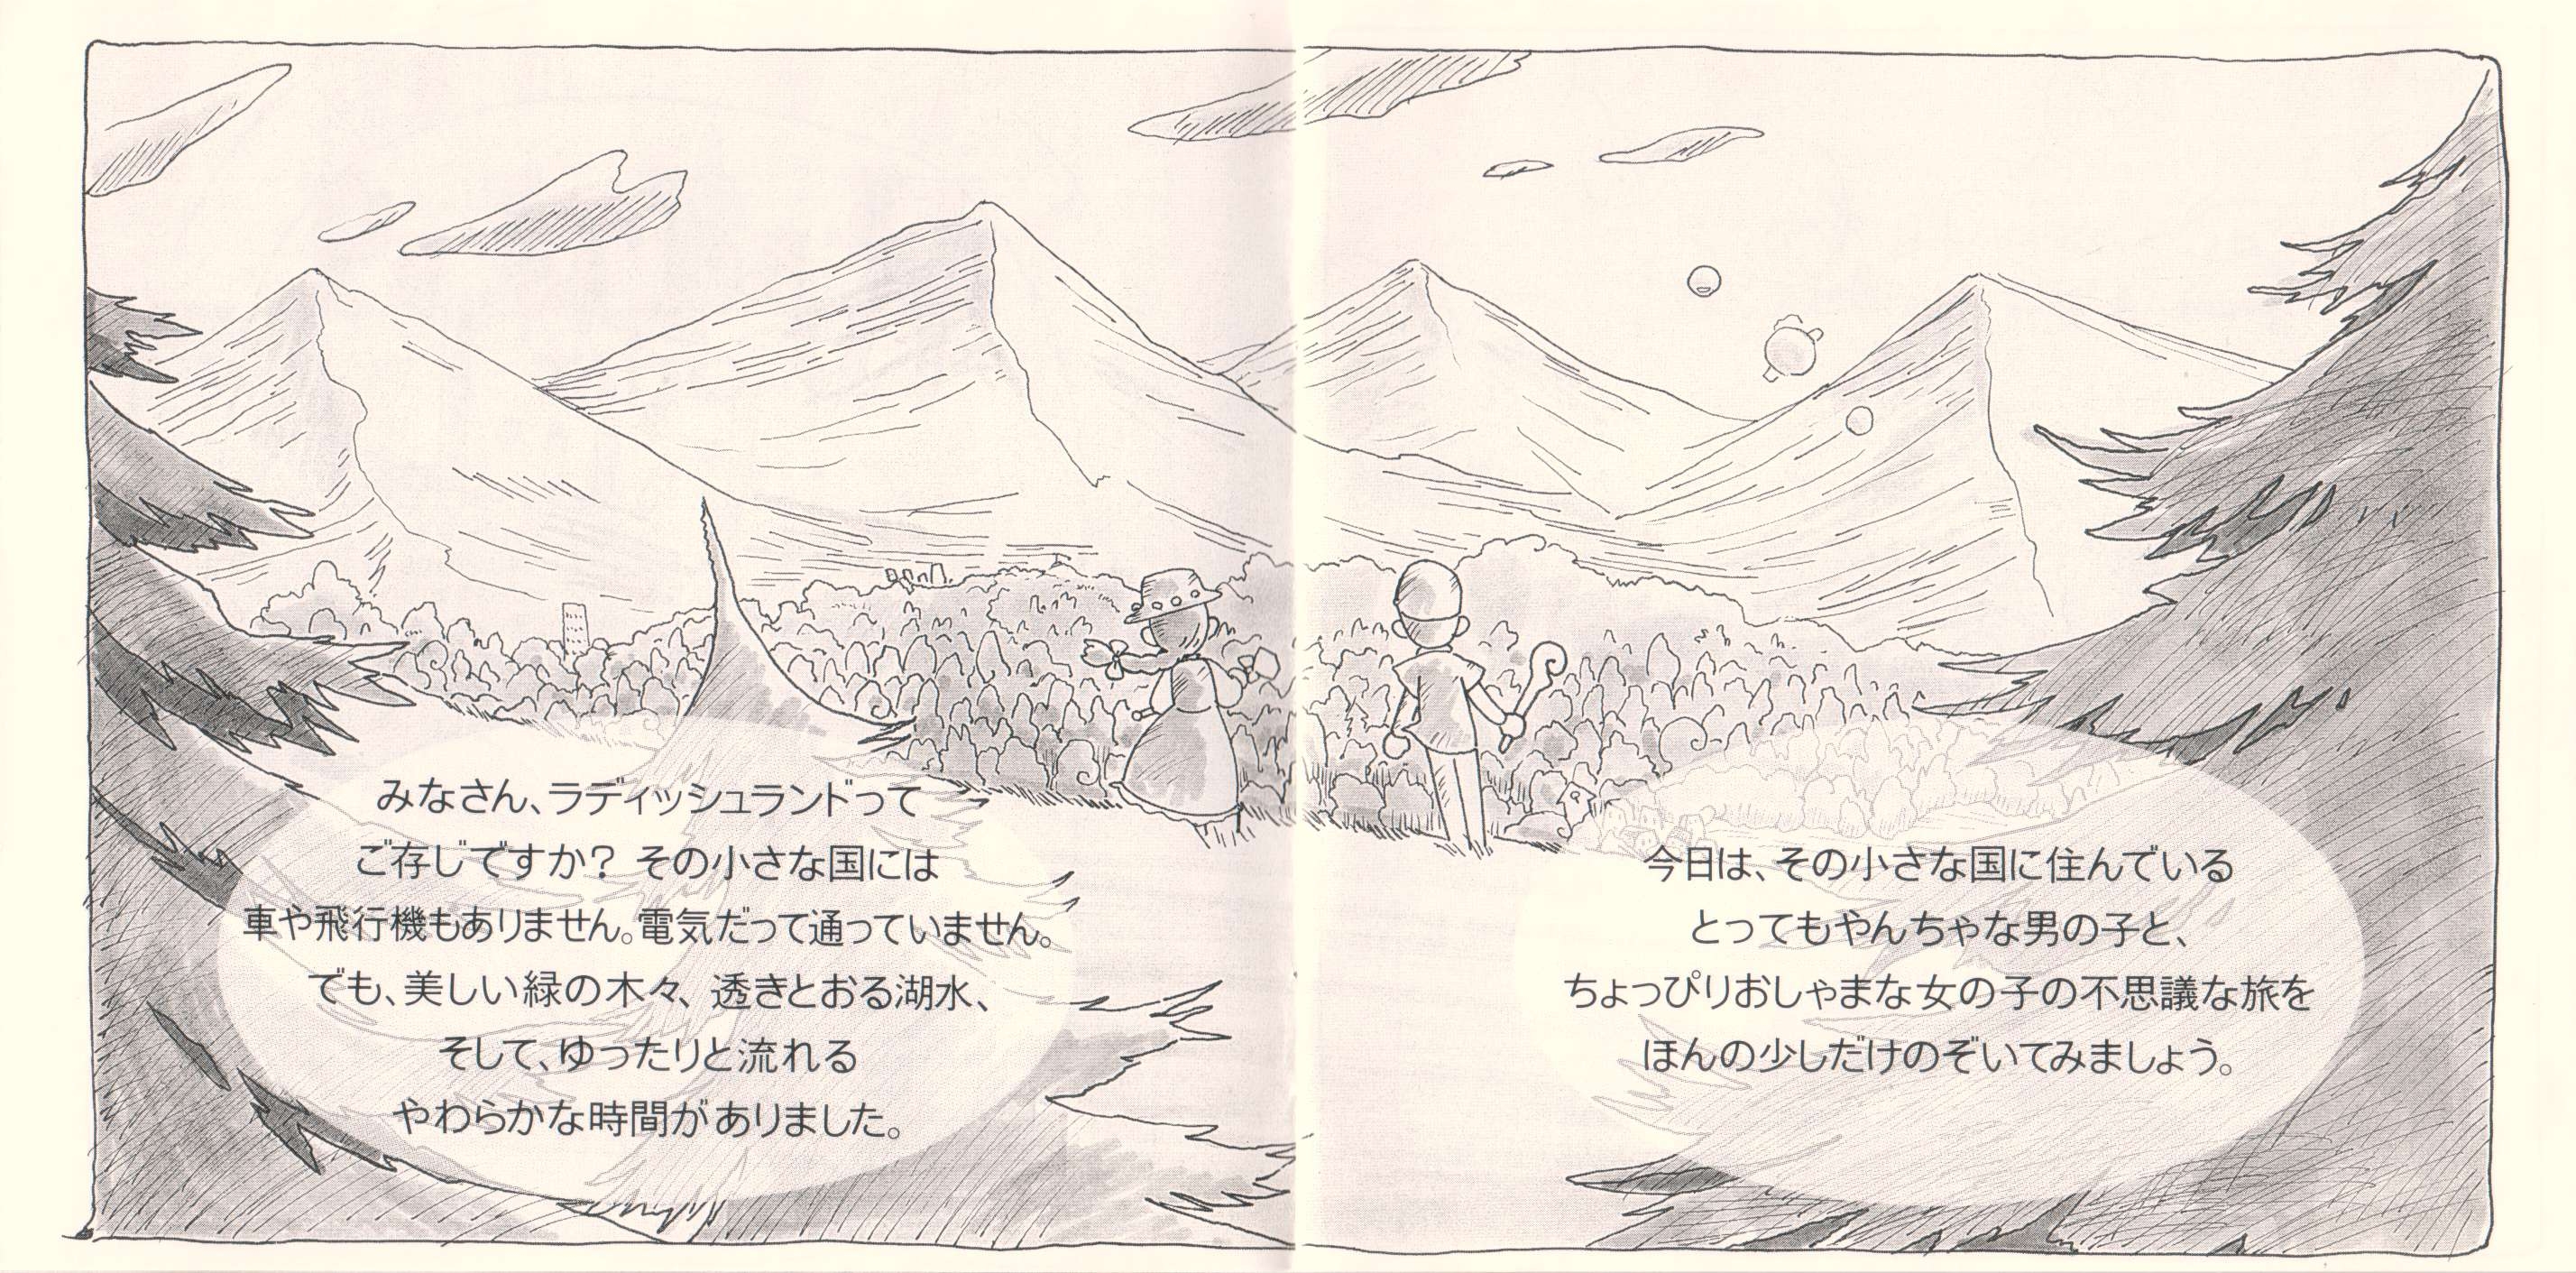 みなさん、ラディッシュランドって
ご存じですか? その小さな国には
車や飛行機もありません。電気だって通っていません。
でも、美しい緑の木々、透きとおる湖水、
そして、ゆったりと流れる
やわらかな時間がありました。
今日は、その小さな国に住んでいる
とってもやんちゃな男の子と、
ちょっぴりおしゃまな女の子の不思議な旅を
ほんの少しだけのぞいてみましょう。